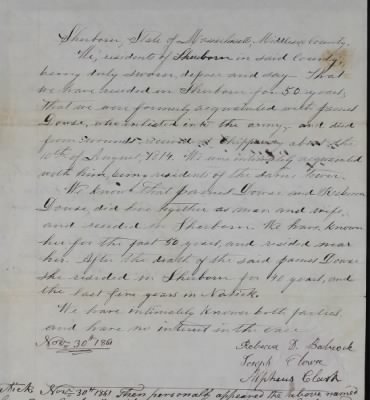 Sherborn, State of Massachusetts, Middlesex County.
We, residents of Sherborn in said County,
being duly sworn, depose and say That
we have resided in Sherborn for 50 years,
That we are formerly acquainted with James
Dowse, who enlisted into the army, and died
from wounds received at Chippewa about the
10th of August, 1814. We are intimately acquainted
with him, being residents of the same town.
We know that James Dowse and Rebecca
Dowse, did live together as man and wife,
and resided in Sherborn. We have known
her for the past 50 years, and resided near
her. After the death of the said James Dowse
she resided in Sherborn for 40 years, and
the last five years in Natick.
We have intimately known both parties
and have no interest in the case
Nov. 30th 1861
Rebecca D. Babcock
Joseph Dowse
Alpheus Clark
Natick Nov. 30th 1861 Then personally appeared the above named